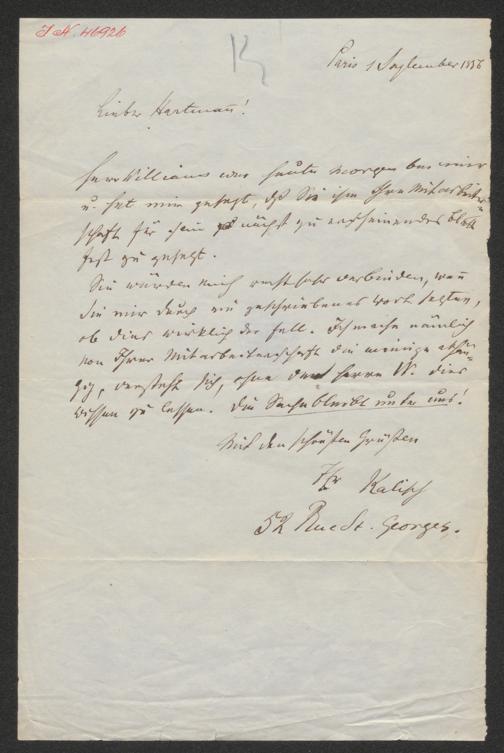 J. N. 46926
K
Paris 1 September 1856
Lieber Hartmann!
Herr Williams war heute Morgen bei mir
u. hat mir gesagt, daß Sie ihm Ihre Mitarbeiter-
schaft für sein nächst zu erscheinendes Blatt
fest zu gesagt.
Sie würden mich recht sehr verbinden, wenn
Sie mir durch ein geschriebenes Wort sagten,
ob dies wirklich der Fall. Ich mache nämlich
von Ihrer Mitarbeiterschaft die meinige abhän-
gig, versteht sich, ohne Herrn W. dies
wissen zu lassen. Die Sache bleibt unter uns!
Mit den schönsten Grüßen
Ihr Kalisch
52 Rue St. Georges.